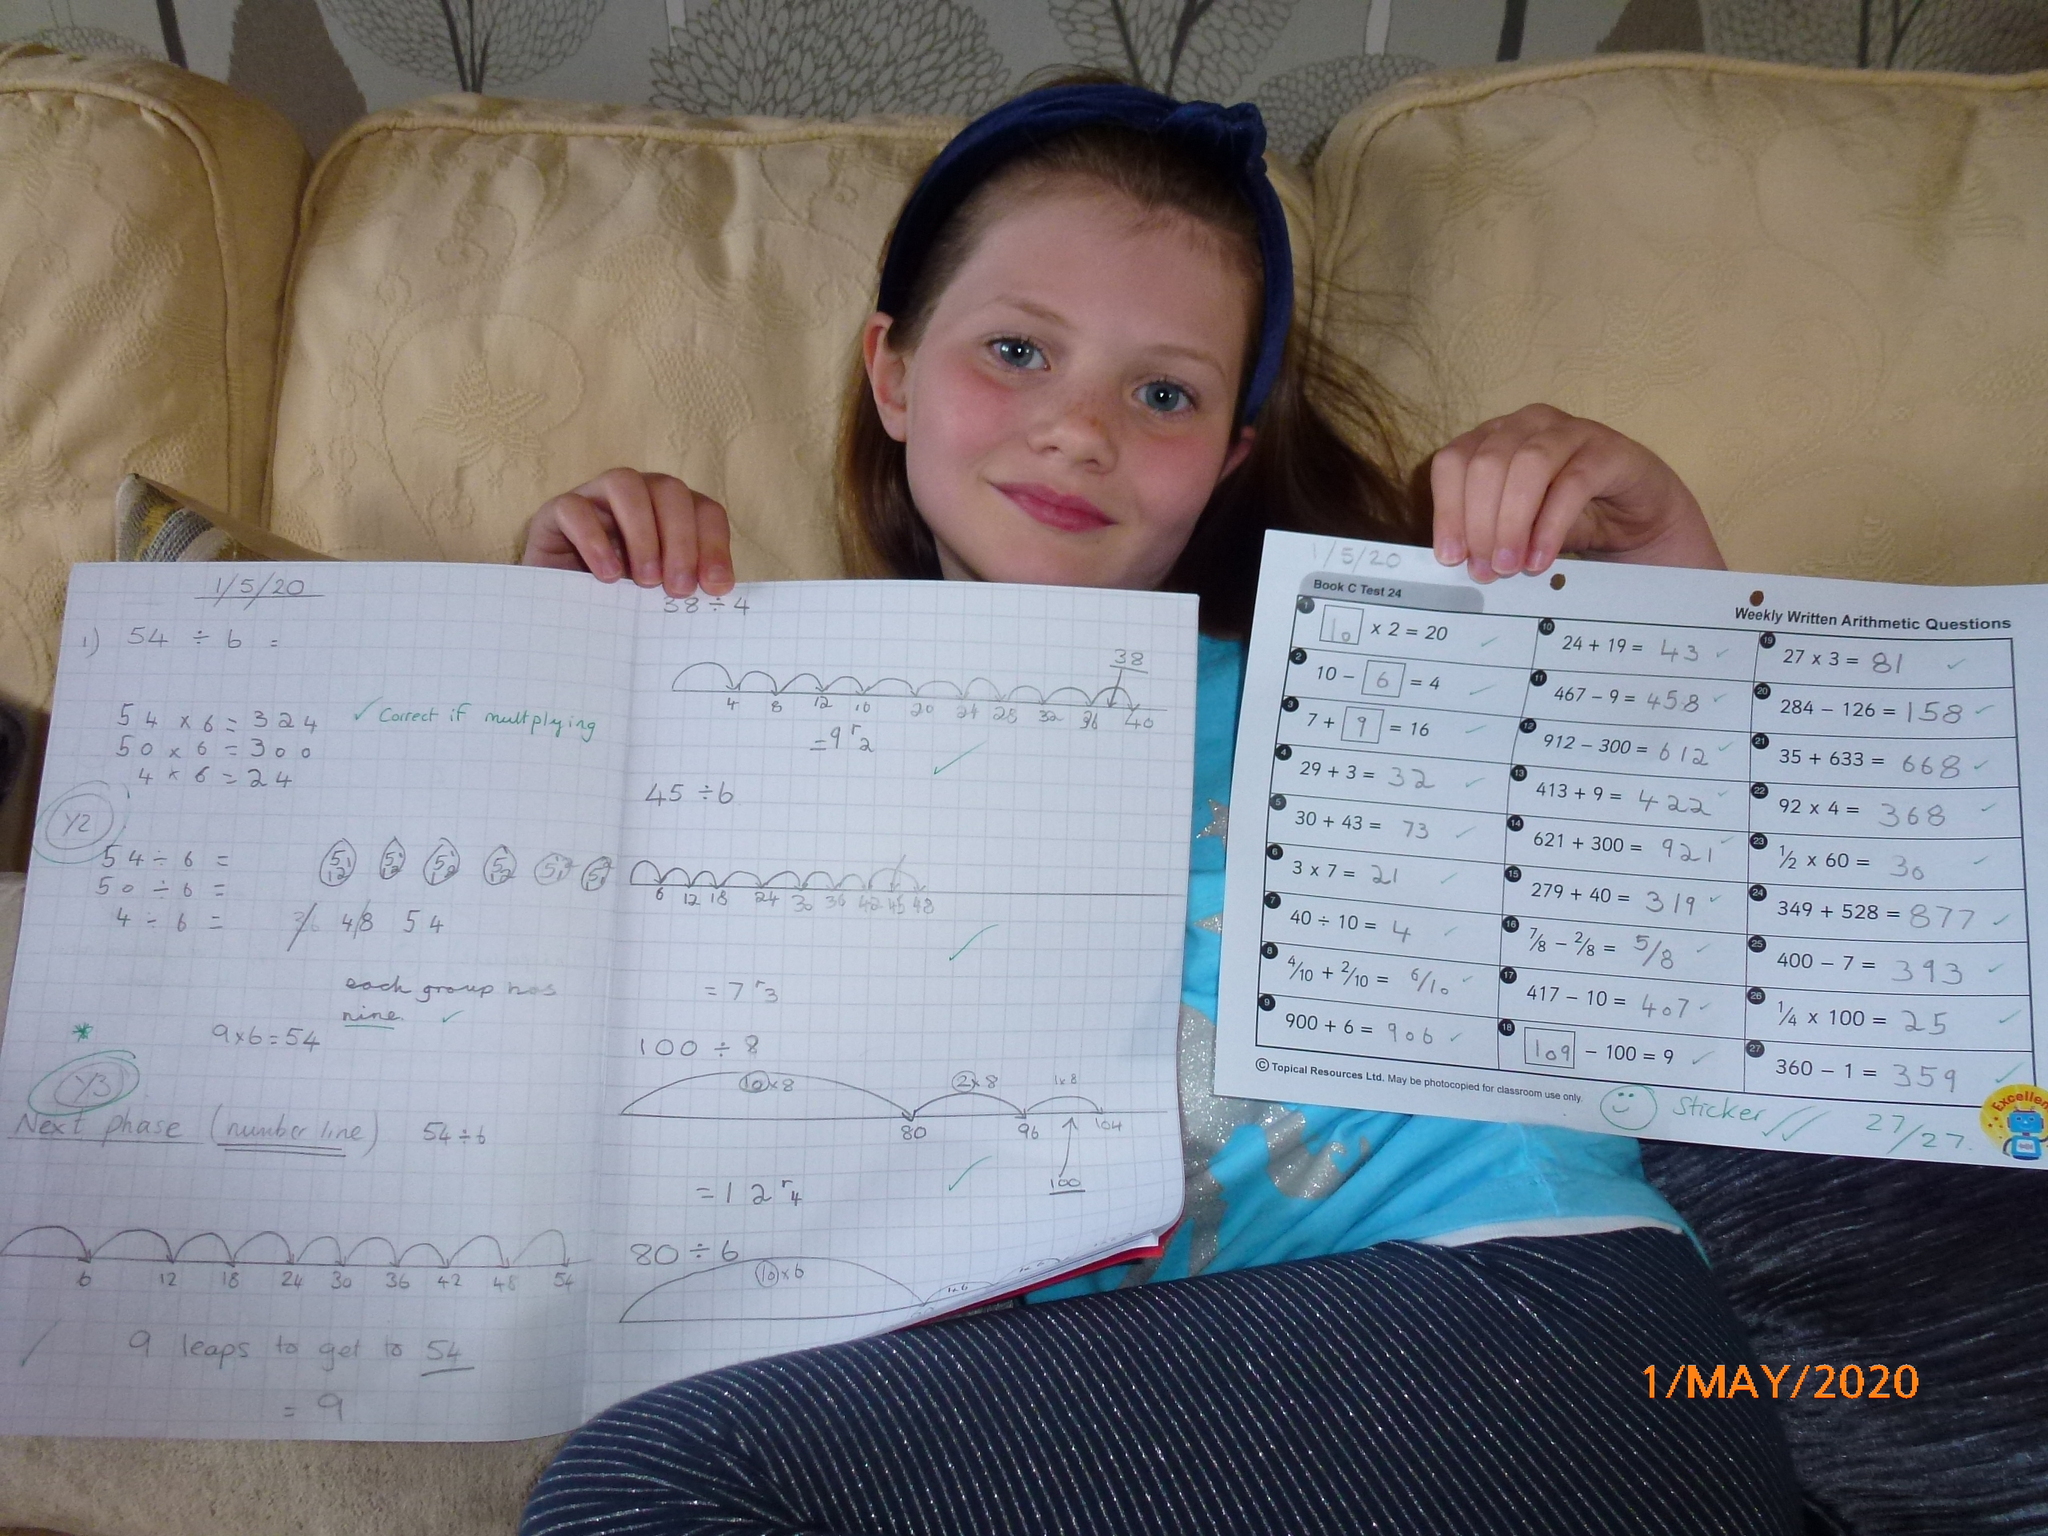 1/5/20
1) 54 ÷ 6 =
54 x 6 = 324 ✓ Correct if multplying
50 x 6 = 300
4 x 6 = 24
Y2
54 ÷ 6 =
50 ÷ 6 =
4 ÷ 6 =
48 54
each group has
nine. ✓
9x6=54
*
Y3
Next phase (number line) 54÷6
6 12 18 24 30 36 42 48 54
9 leaps to get to 54
= 9
38 ÷ 4
38
4 8 12 16 20 24 28 32 36 40
=9 r2
45 ÷6
6 12 18 24 30 36 42 45 48
= 7 r3
100 ÷ 8
10 x 8 2 x 8 1x8
80 96 104
100
= 12 r4
80 ÷ 6
10 x 6
1/5/20
Book C Test 24
Weekly Written Arithmetic Questions
1 10 x 2 = 20
2 10 – 6 = 4
3 7 + 9 = 16
4 29 + 3 = 32
5 30 + 43 = 73
6 3 x 7 = 21
7 40 ÷ 10 = 4
8 4/10 + 2/10 = 6/10
9 900 + 6 = 906
10 24 + 19 = 43
11 467 – 9 = 458
12 912 – 300 = 612
13 413 + 9 = 422
14 621 + 300 = 921
15 279 + 40 = 319
16 7/8 – 2/8 = 5/8
17 417 – 10 = 407
18 109 – 100 = 9
19 27 x 3 = 81
20 284 – 126 = 158
21 35 + 633 = 668
22 92 x 4 = 368
23 1/2 x 60 = 30
24 349 + 528 = 877
25 400 – 7 = 393
26 1/4 x 100 = 25
27 360 – 1 = 359
© Topical Resources Ltd. May be photocopied for classroom use only.
Sticker 27/27.
1/MAY/2020